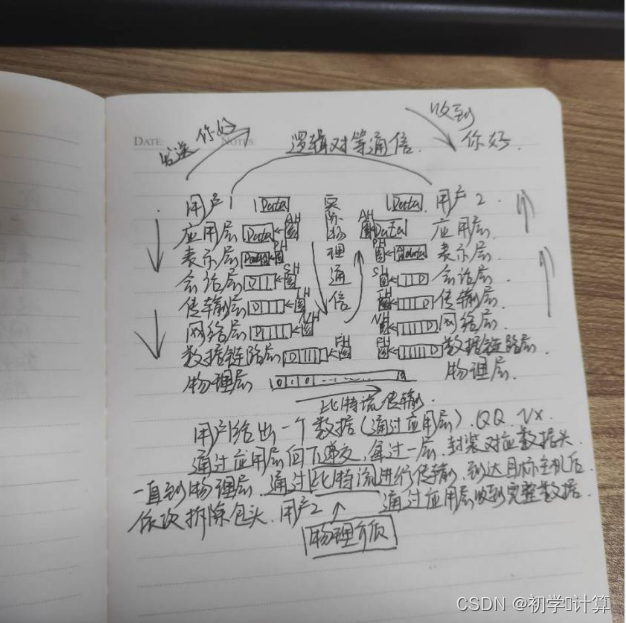 DATE: NOTES:
发送 你好
收到
你好.
逻辑对等通信.
用户1 Data Data 用户2
应用层 Data AH AH Data 应用层.
表示层 PH PH 表示层
会话层 SH SH D 会话层
传输层 D D 传输层.
网络层 D NH NH D 网络层.
数据链路层 D D 数据链路层
物理层 物理层.
实际物理通信
比特流传输
用户1给出一个数据(通过应用层). QQ VX.
通过应用层向下递交, 每过一层, 封装对应数据头
一直到物理层. 通过比特流进行传输, 到达目标主机后
依次拆除包头. 用户2 通过应用层收到完整数据.
物理介质
CSDN @初学 计算